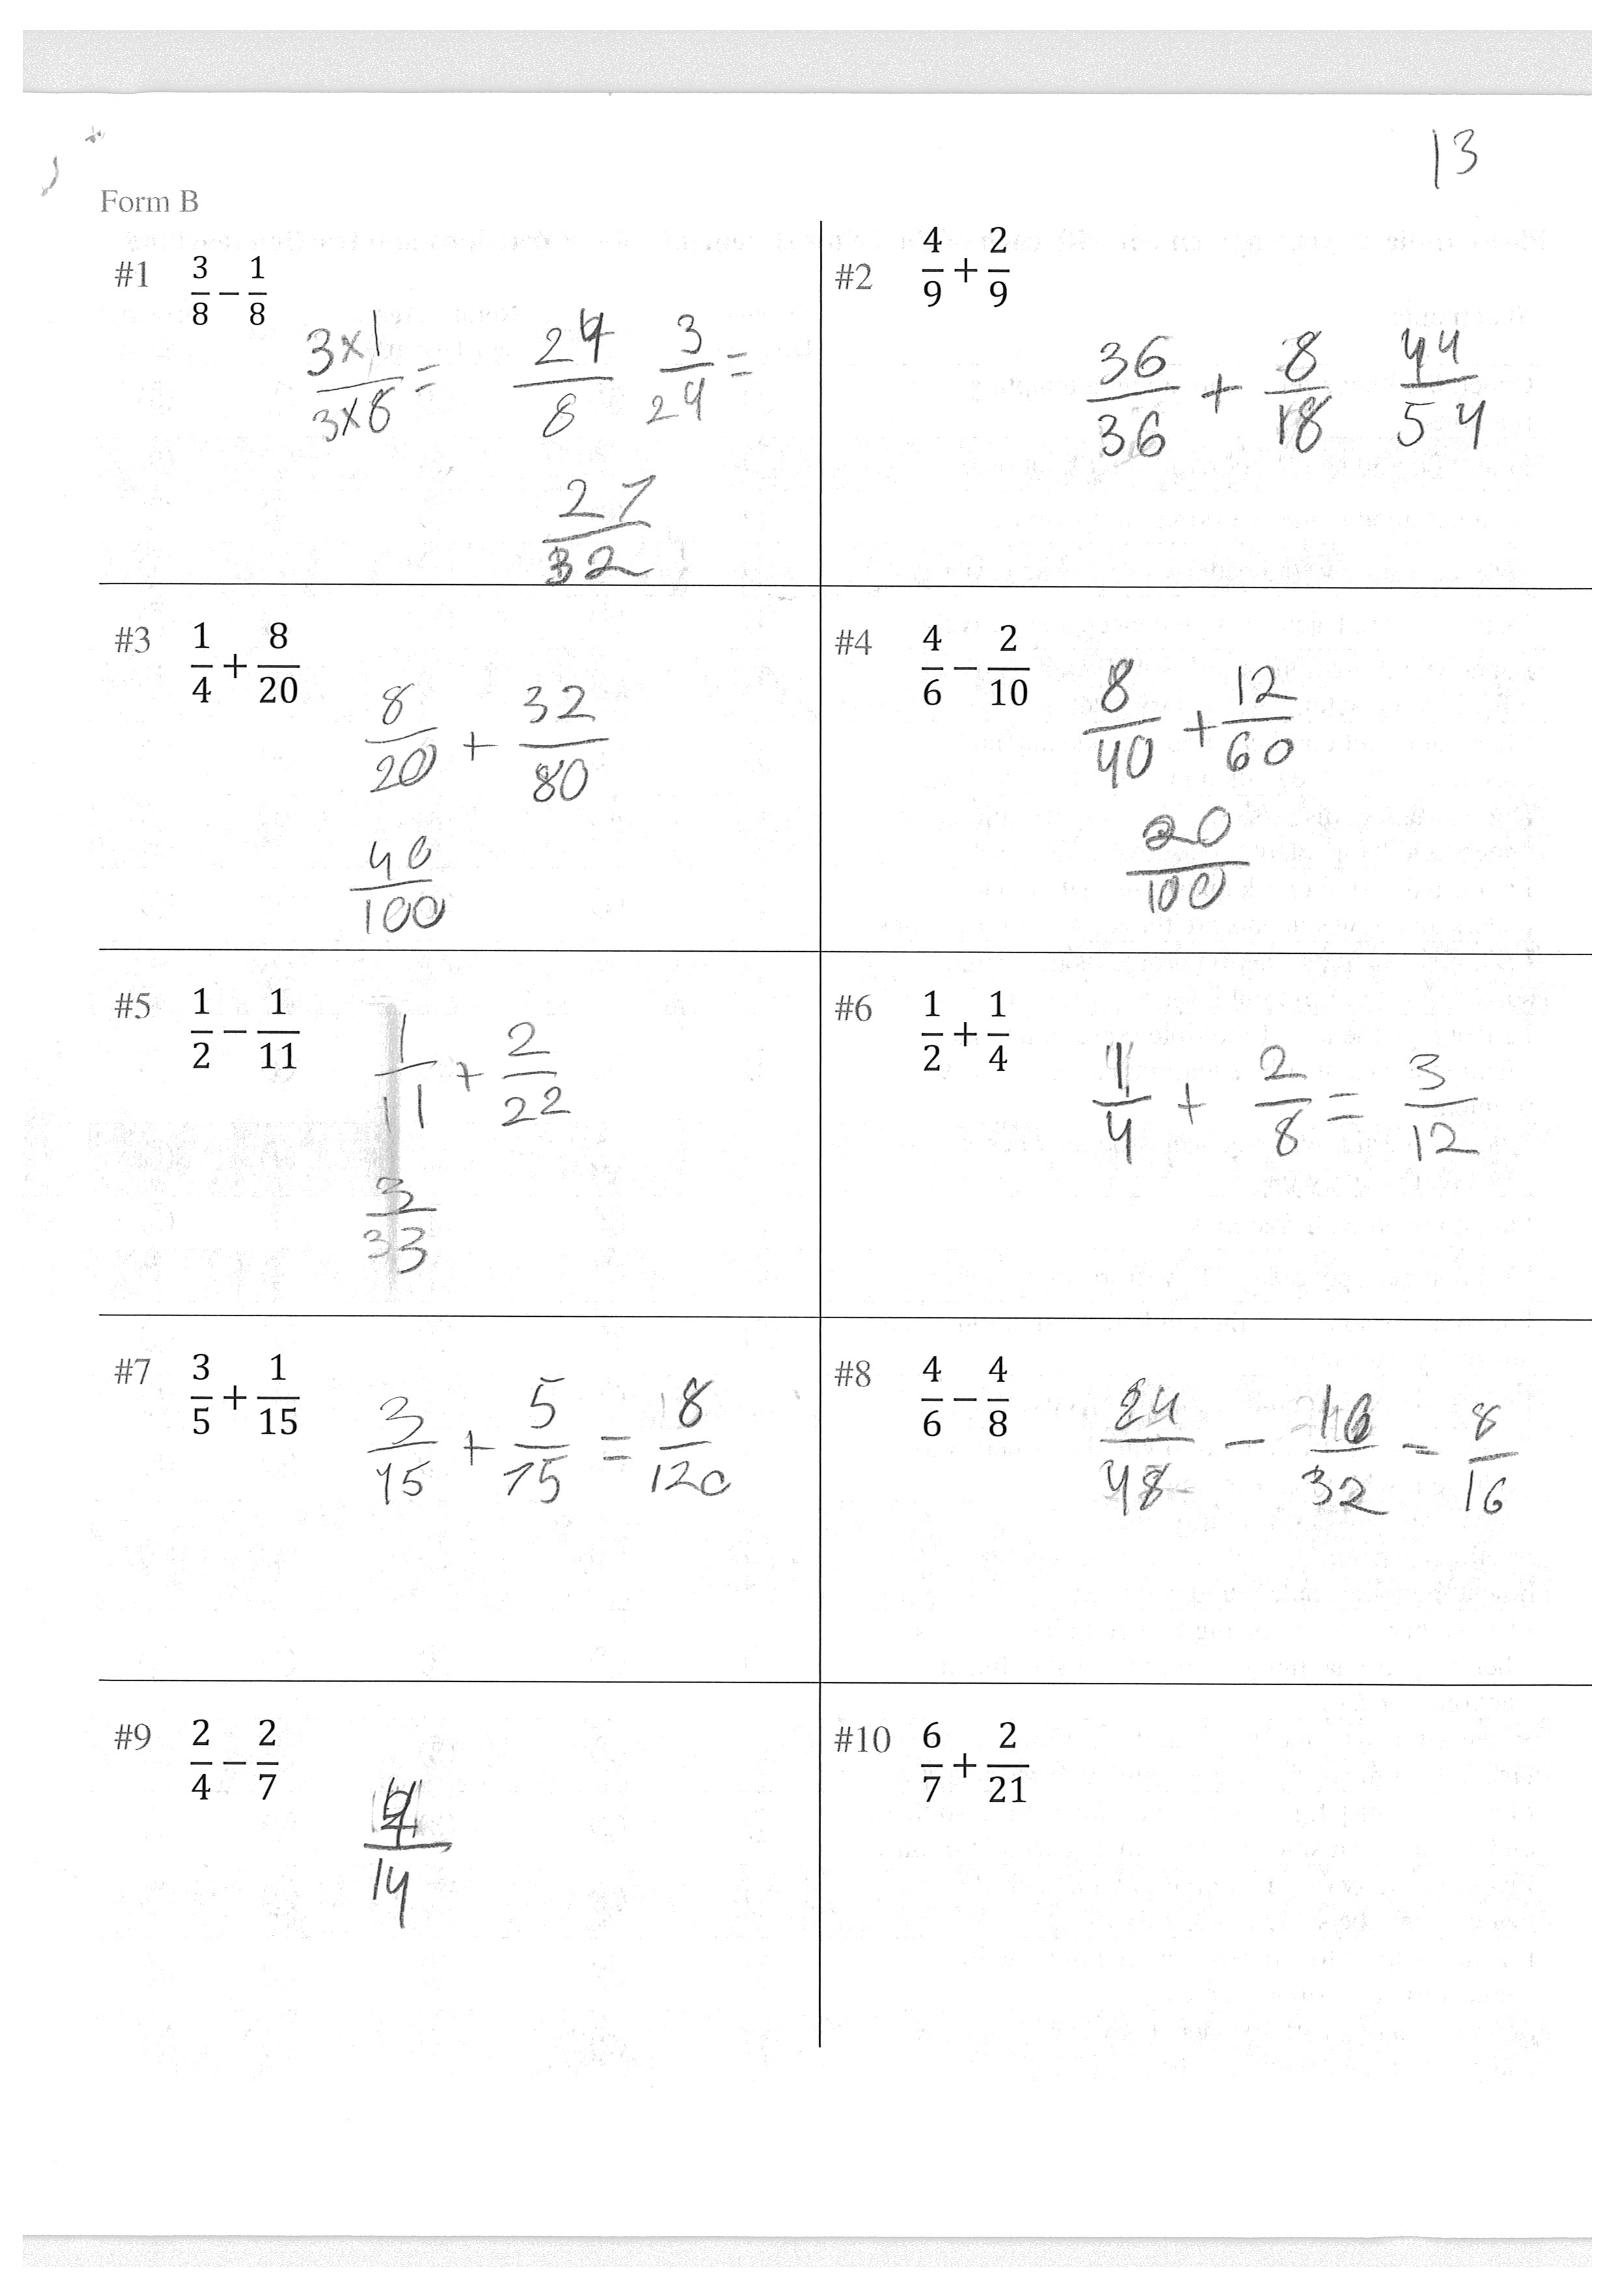 13
Form B
#1 3/8 − 1/8
3×1/3×8 = 24/8 3/24 =
27/32
#2 4/9 + 2/9
36/36 + 8/18 44/54
#3 1/4 + 8/20
8/20 + 32/80
40/100
#4 4/6 − 2/10
8/40 + 12/60
20/100
#5 1/2 − 1/11
1/11 + 2/22
3/33
#6 1/2 + 1/4
1/4 + 2/8 = 3/12
#7 3/5 + 1/15
3/45 + 5/75 = 8/120
#8 4/6 − 4/8
24/48 − 16/32 = 8/16
#9 2/4 − 2/7
/14
#10 6/7 + 2/21